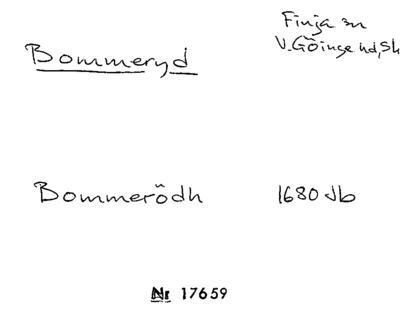 Bommeryd
Finja sn
V. Göinge hd, Sk
Bommerödh
1680 Jb
Nr 17659